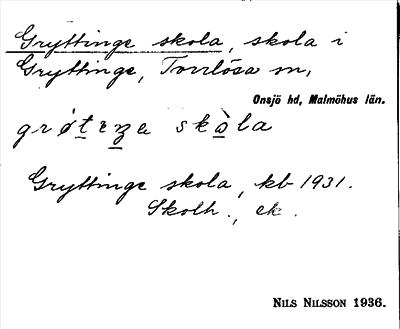 Gryttinge skola, skola i
Gryttinge, Torrlösa sn,
Onsjö hd, Malmöhus län.
skola
Gryttinge skola, kb 1931.
Skolh., ek.
NILS NILSSON 1936.